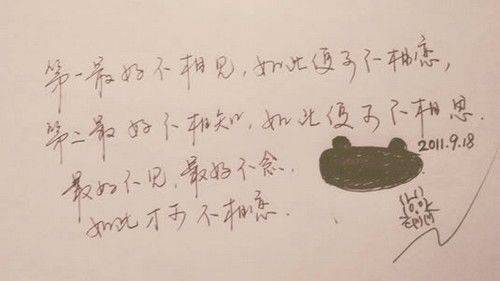 第一最好不相见，如此便可不相恋，
第二最好不相知，如此便可不相思。
最好不见，最好不念。
如此才可不相恋．
2011.9.18